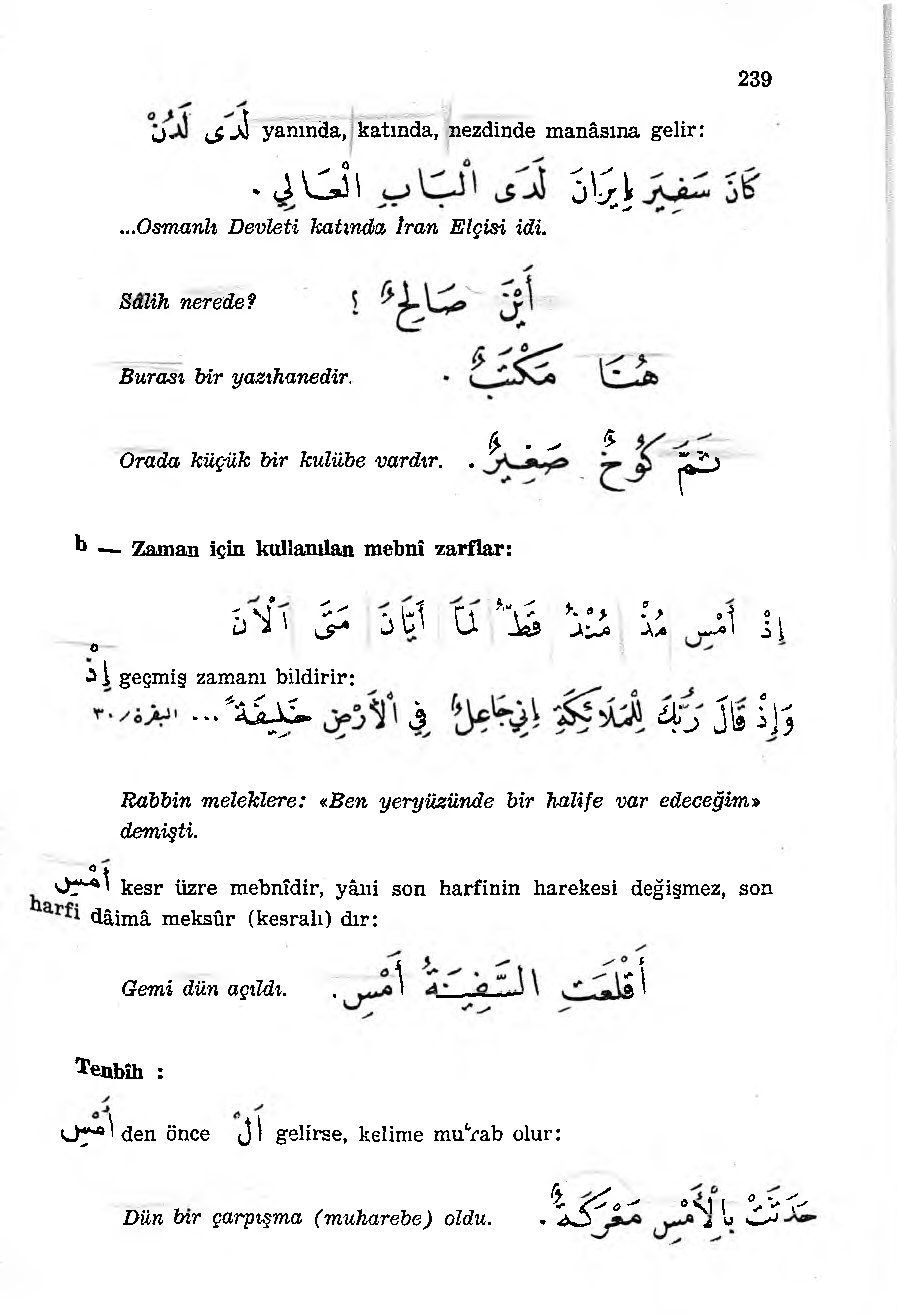 239
لَدُنْ لَدَى yanında, katında, nezdinde manâsına gelir:
كَانَ سَفِيرَ إِيرَانَ لَدَى الْبَابِ الْعَالِي .
...Osmanlı Devleti katında İran Elçisi idi.
Sâlih nerede? أَيْنَ صَالِحٌ ؟
Burası bir yazıhanedir. هُنَا مَكْتَبٌ .
Orada küçük bir kulübe vardır. ثَمَّ كُوخٌ صَغِيرٌ .
b — Zaman için kullanılan mebnî zarflar:
إِذْ أَمْسِ مُذْ مُنْذُ قَطُّ لَمَّا أَيَّانَ مَتَى اَلْآنَ
إِذْ geçmiş zamanı bildirir:
وَإِذْ قَالَ رَبُّكَ لِلْمَلَائِكَةِ إِنِّي جَاعِلٌ فِي الْأَرْضِ خَلِيفَةً ... البقرة/٣٠
Rabbin meleklere: «Ben yeryüzünde bir halife var edeceğim»
demişti.
أَمْسِ kesr üzre mebnîdir, yâni son harfinin harekesi değişmez, son
harfi dâimâ meksûr (kesralı) dır:
Gemi dün açıldı. أَقْلَعَتِ السَّفِينَةُ أَمْسِ.
Tenbîh :
أَمْسِ den önce اَلْ gelirse, kelime mu‘rab olur:
Dün bir çarpışma (muharebe) oldu. حَدَثَتْ بِالْأَمْسِ مَعْرَكَةٌ .